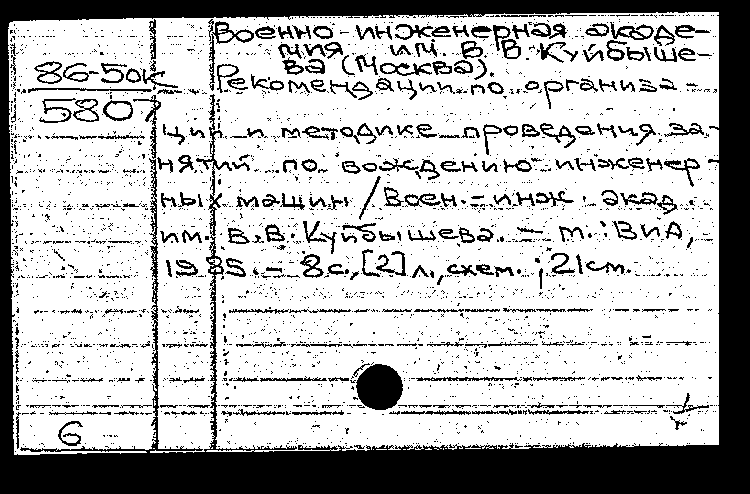 Военно-инженерная акаде-
мия им. В.В. Куйбыше-
ва (Москва).
86-50к
5807
Рекомендации по организа-
ции и методике проведения за-
нятий по вождению инженер-
ных машин / Воен.-инж. акад.
им. В.В. Куйбышева. - М.: ВИА,
1985. - 8 с., [2] л., схем.; 21 см.
6